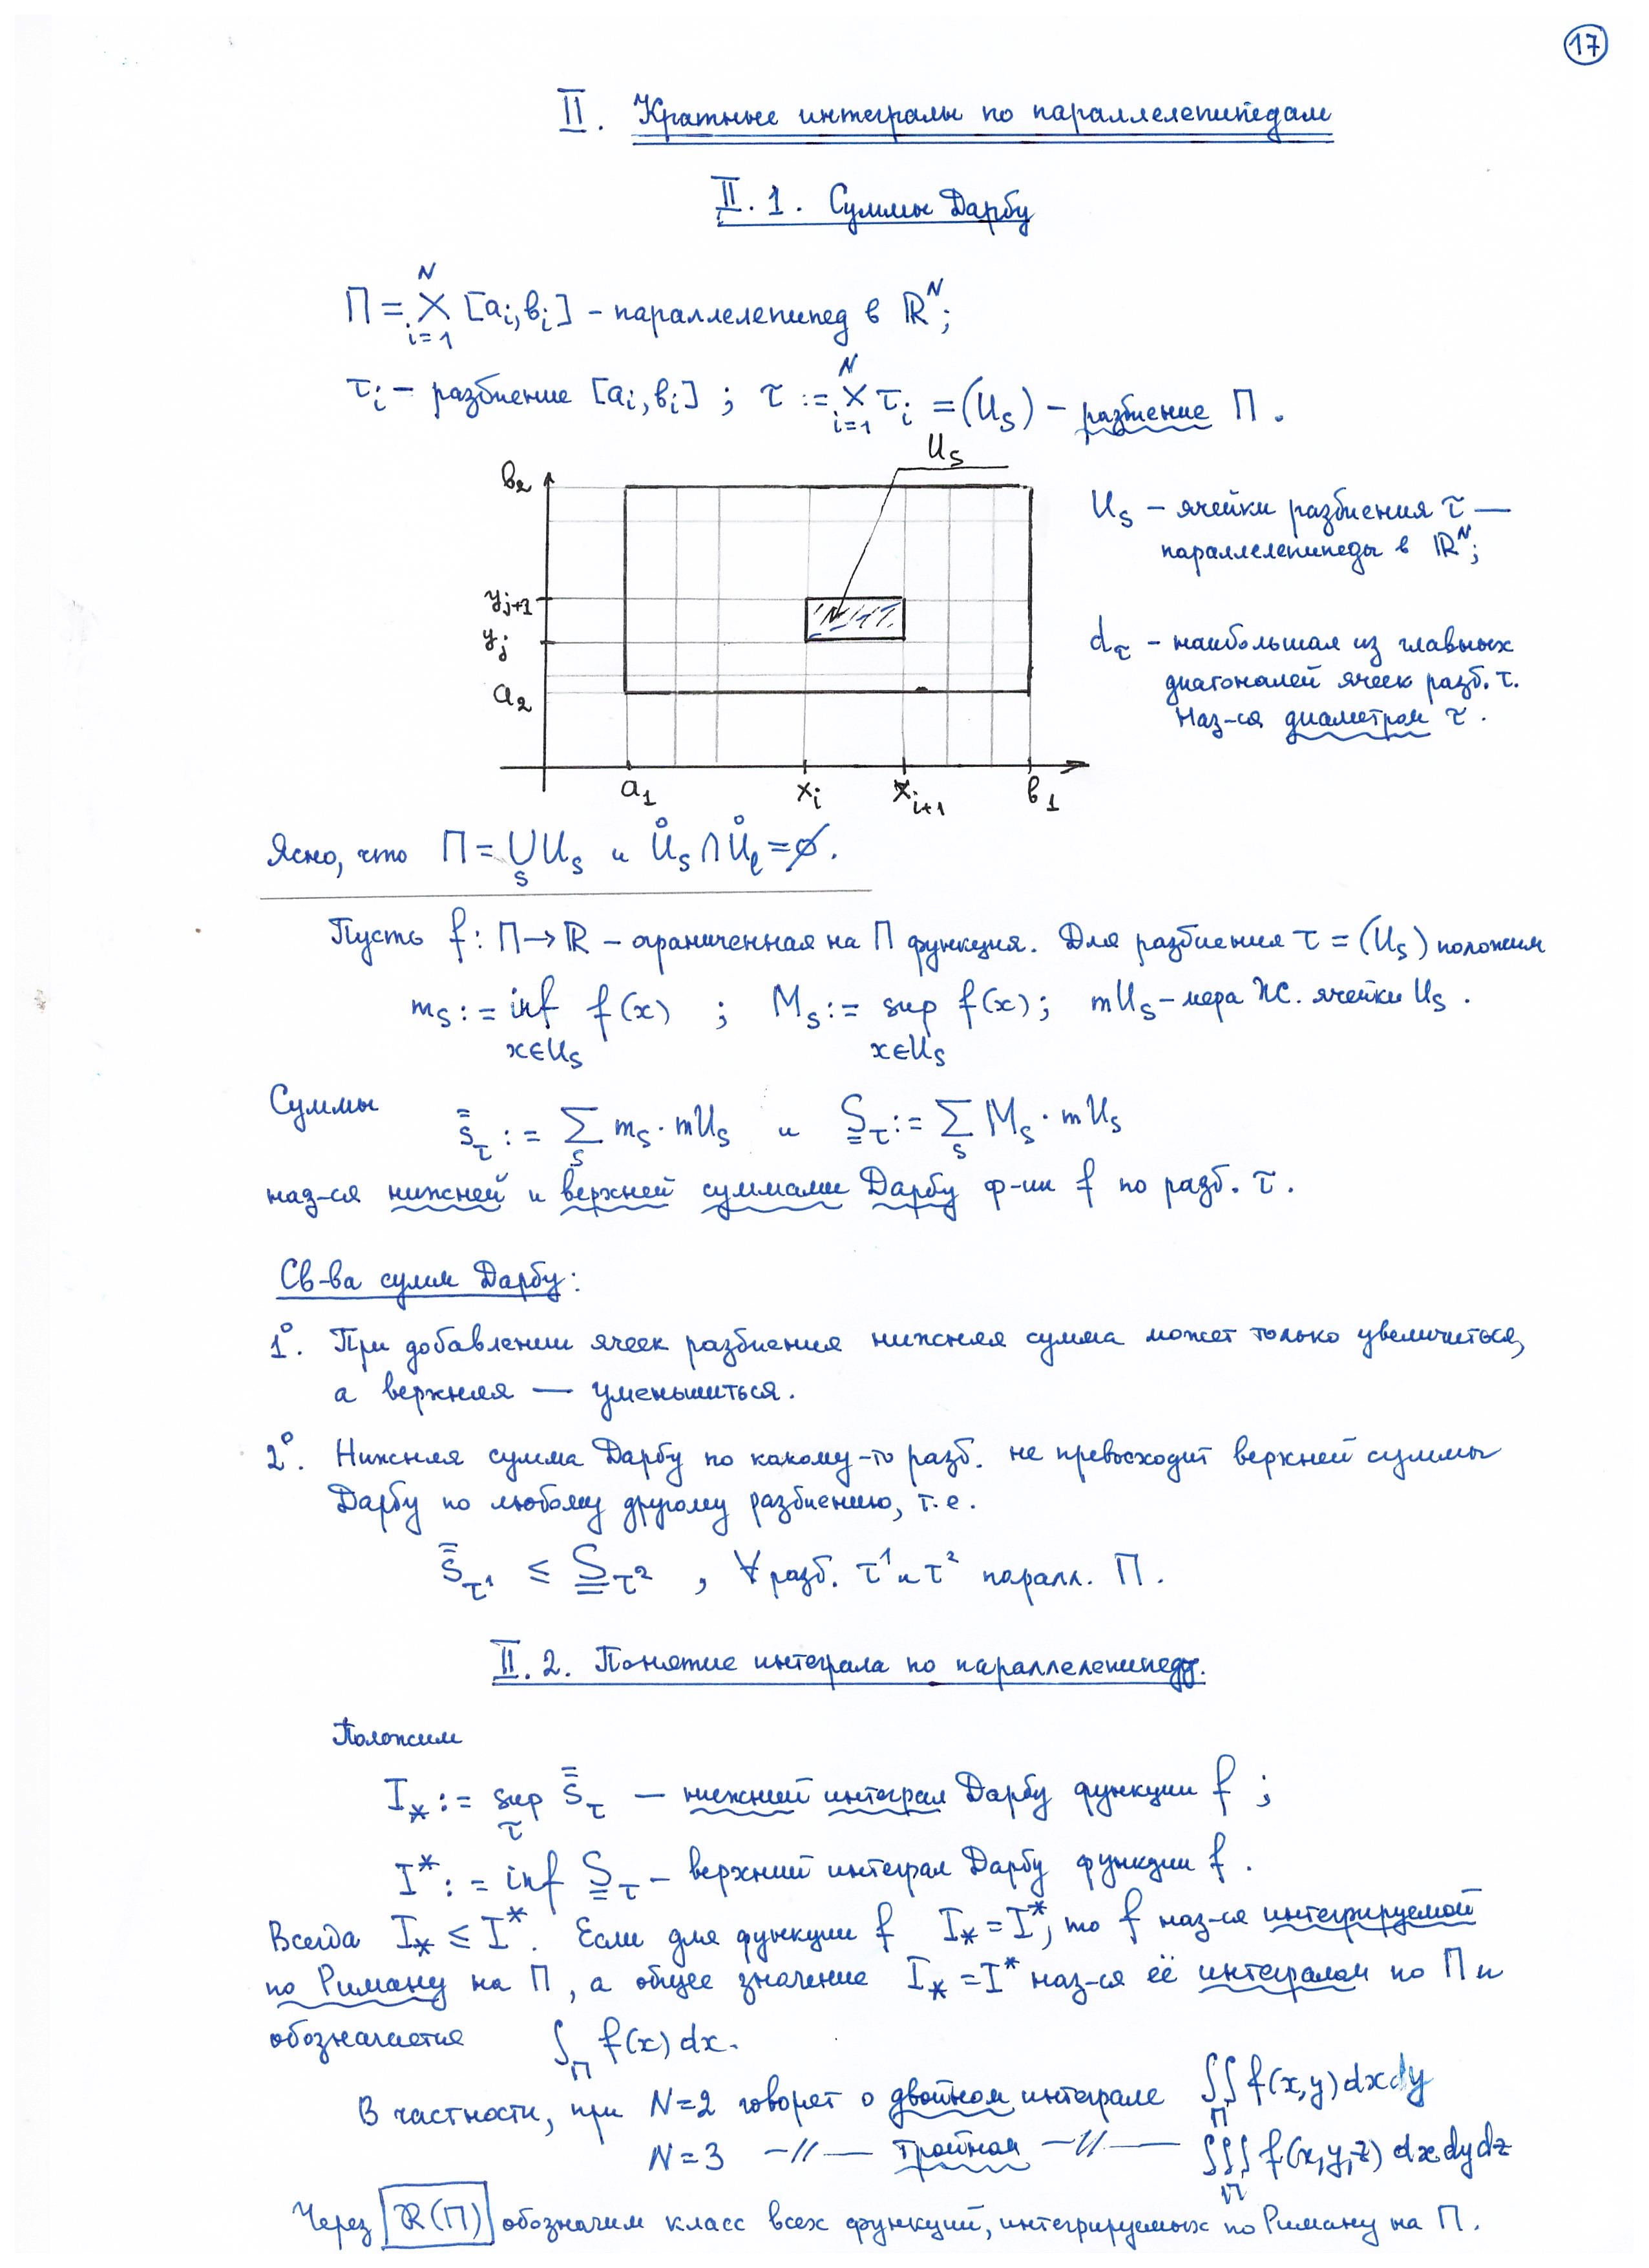 17
II. Кратные интегралы по параллелепипедам
II.1. Суммы Дарбу
N
П = × [aᵢ, bᵢ] – параллелепипед в ℝᴺ;
i=1
N
τᵢ – разбиение [aᵢ, bᵢ]; τ := × τᵢ = (U_s) – разбиение П.
i=1
U_s
b₂
y_{j+1}
y_j
a₂
a₁ x_i x_{i+1} b₁
U_s – ячейки разбиения τ —
параллелепипеды в ℝᴺ;
d_τ – наибольшая из главных
диагоналей ячеек разб. τ.
Наз-ся диаметром τ.
Ясно, что П = ⋃ U_s и Ů_s ∩ Ů_l = ∅.
s
Пусть f: П → ℝ – ограниченная на П функция. Для разбиения τ = (U_s) положим
m_s := inf f(x) ; M_s := sup f(x); mU_s – мера Ж. ячейки U_s.
x∈U_s x∈U_s
Суммы s̿_τ := ∑ m_s · mU_s и S̳_τ := ∑ M_s · mU_s
s s
наз-ся нижней и верхней суммами Дарбу ф-ии f по разб. τ.
Св-ва сумм Дарбу:
1°. При добавлении ячеек разбиения нижняя сумма может только увеличиться,
а верхняя — уменьшиться.
2°. Нижняя сумма Дарбу по какому-то разб. не превосходит верхней суммы
Дарбу по любому другому разбиению, т.е.
s̿_{τ¹} ≤ S̳_{τ²} , ∀ разб. τ¹ и τ² паралл. П.
II.2. Понятие интеграла по параллелепипеду.
Положим
I_* := sup s̿_τ — нижний интеграл Дарбу функции f ;
τ
I^* := inf S̳_τ – верхний интеграл Дарбу функции f.
Всегда I_* ≤ I^*. Если для функции f I_* = I^*, то f наз-ся интегрируемой
по Риману на П, а общее значение I_* = I^* наз-ся её интегралом по П и
обозначается ∫_П f(x) dx.
В частности, при N=2 говорят о двойном интеграле ∬ f(x,y) dxdy
П
N=3 –//— тройном –//— ∭ f(x,y,z) dxdydz
П
Через ℛ(П) обозначим класс всех функций, интегрируемых по Риману на П.